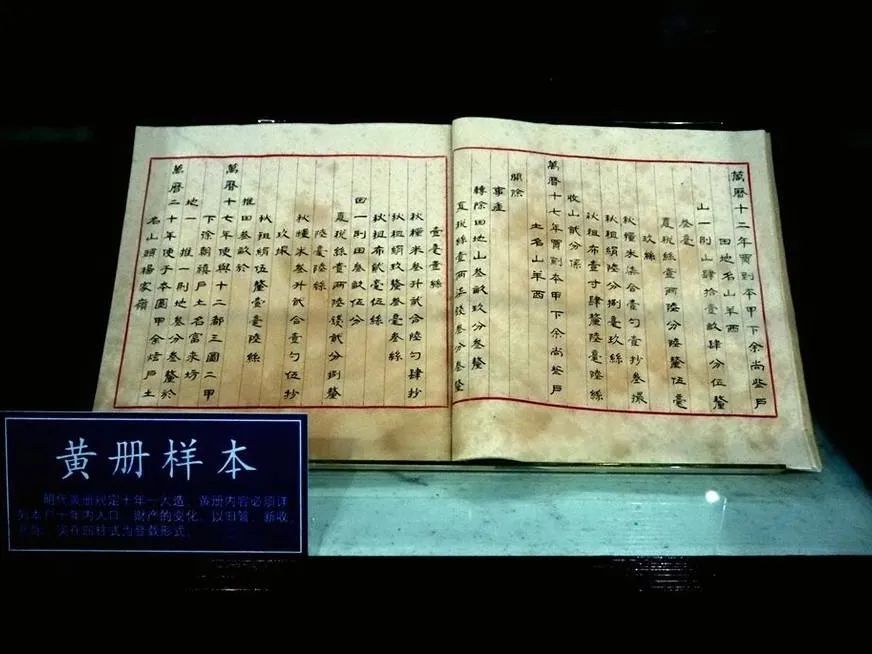 萬曆十二年買到本甲下余尚鉴戶
田地名山羊西
山一則山肆拾壹畝肆分伍釐
叁毫
夏稅絲壹兩陸分陸釐伍毫
玖絲
秋糧米柒合壹勺壹抄叁撮
秋租絹陸分捌毫玖絲
秋租布壹寸肆釐陸毫陸絲
收山貳分係
萬曆十七年買到本甲下余尚鉴戶
土名山羊西
開除
事產
轉除田地山叁畝玖分叁釐
夏稅絲壹兩柒錢叁分叁釐
壹毫壹絲
秋糧米叁升貳合陸勺肆抄
秋租絹玖釐叁毫叁絲
秋租布貳毫伍絲
田一則田叁畝伍分
夏稅絲壹兩陸錢貳分捌釐
陸毫陸絲
秋糧米叁升貳合壹勺伍抄
玖撮
秋租絹伍釐壹毫陸絲
推田叁畝於
萬曆十七年使與十二都三圖二甲
下徐朝禧戶土名富來坊
地一則推一則地叁分叁釐於
萬曆二十年使于本圖甲余焙戶土
名山頭楊家嶺
黄册样本
明代黄册规定十年一大造。黄册内容必须详
列本户十年内人口、财产的变化。以旧管、新收、
开除、实在四柱式为登载形式。